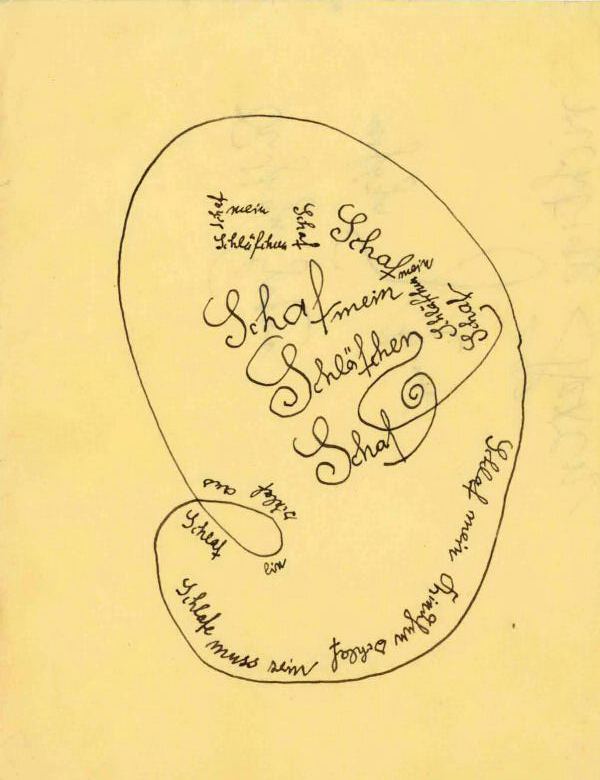 Schaf mein
Schläfchen
Schaf
Schaf
mein
Schläfchen
Schaf
Schaf mein
Schläfchen
Schaf
Schlaf mein
Schlaf
Schlafe muss sein
Schlaf
ein
Schlaf
aus